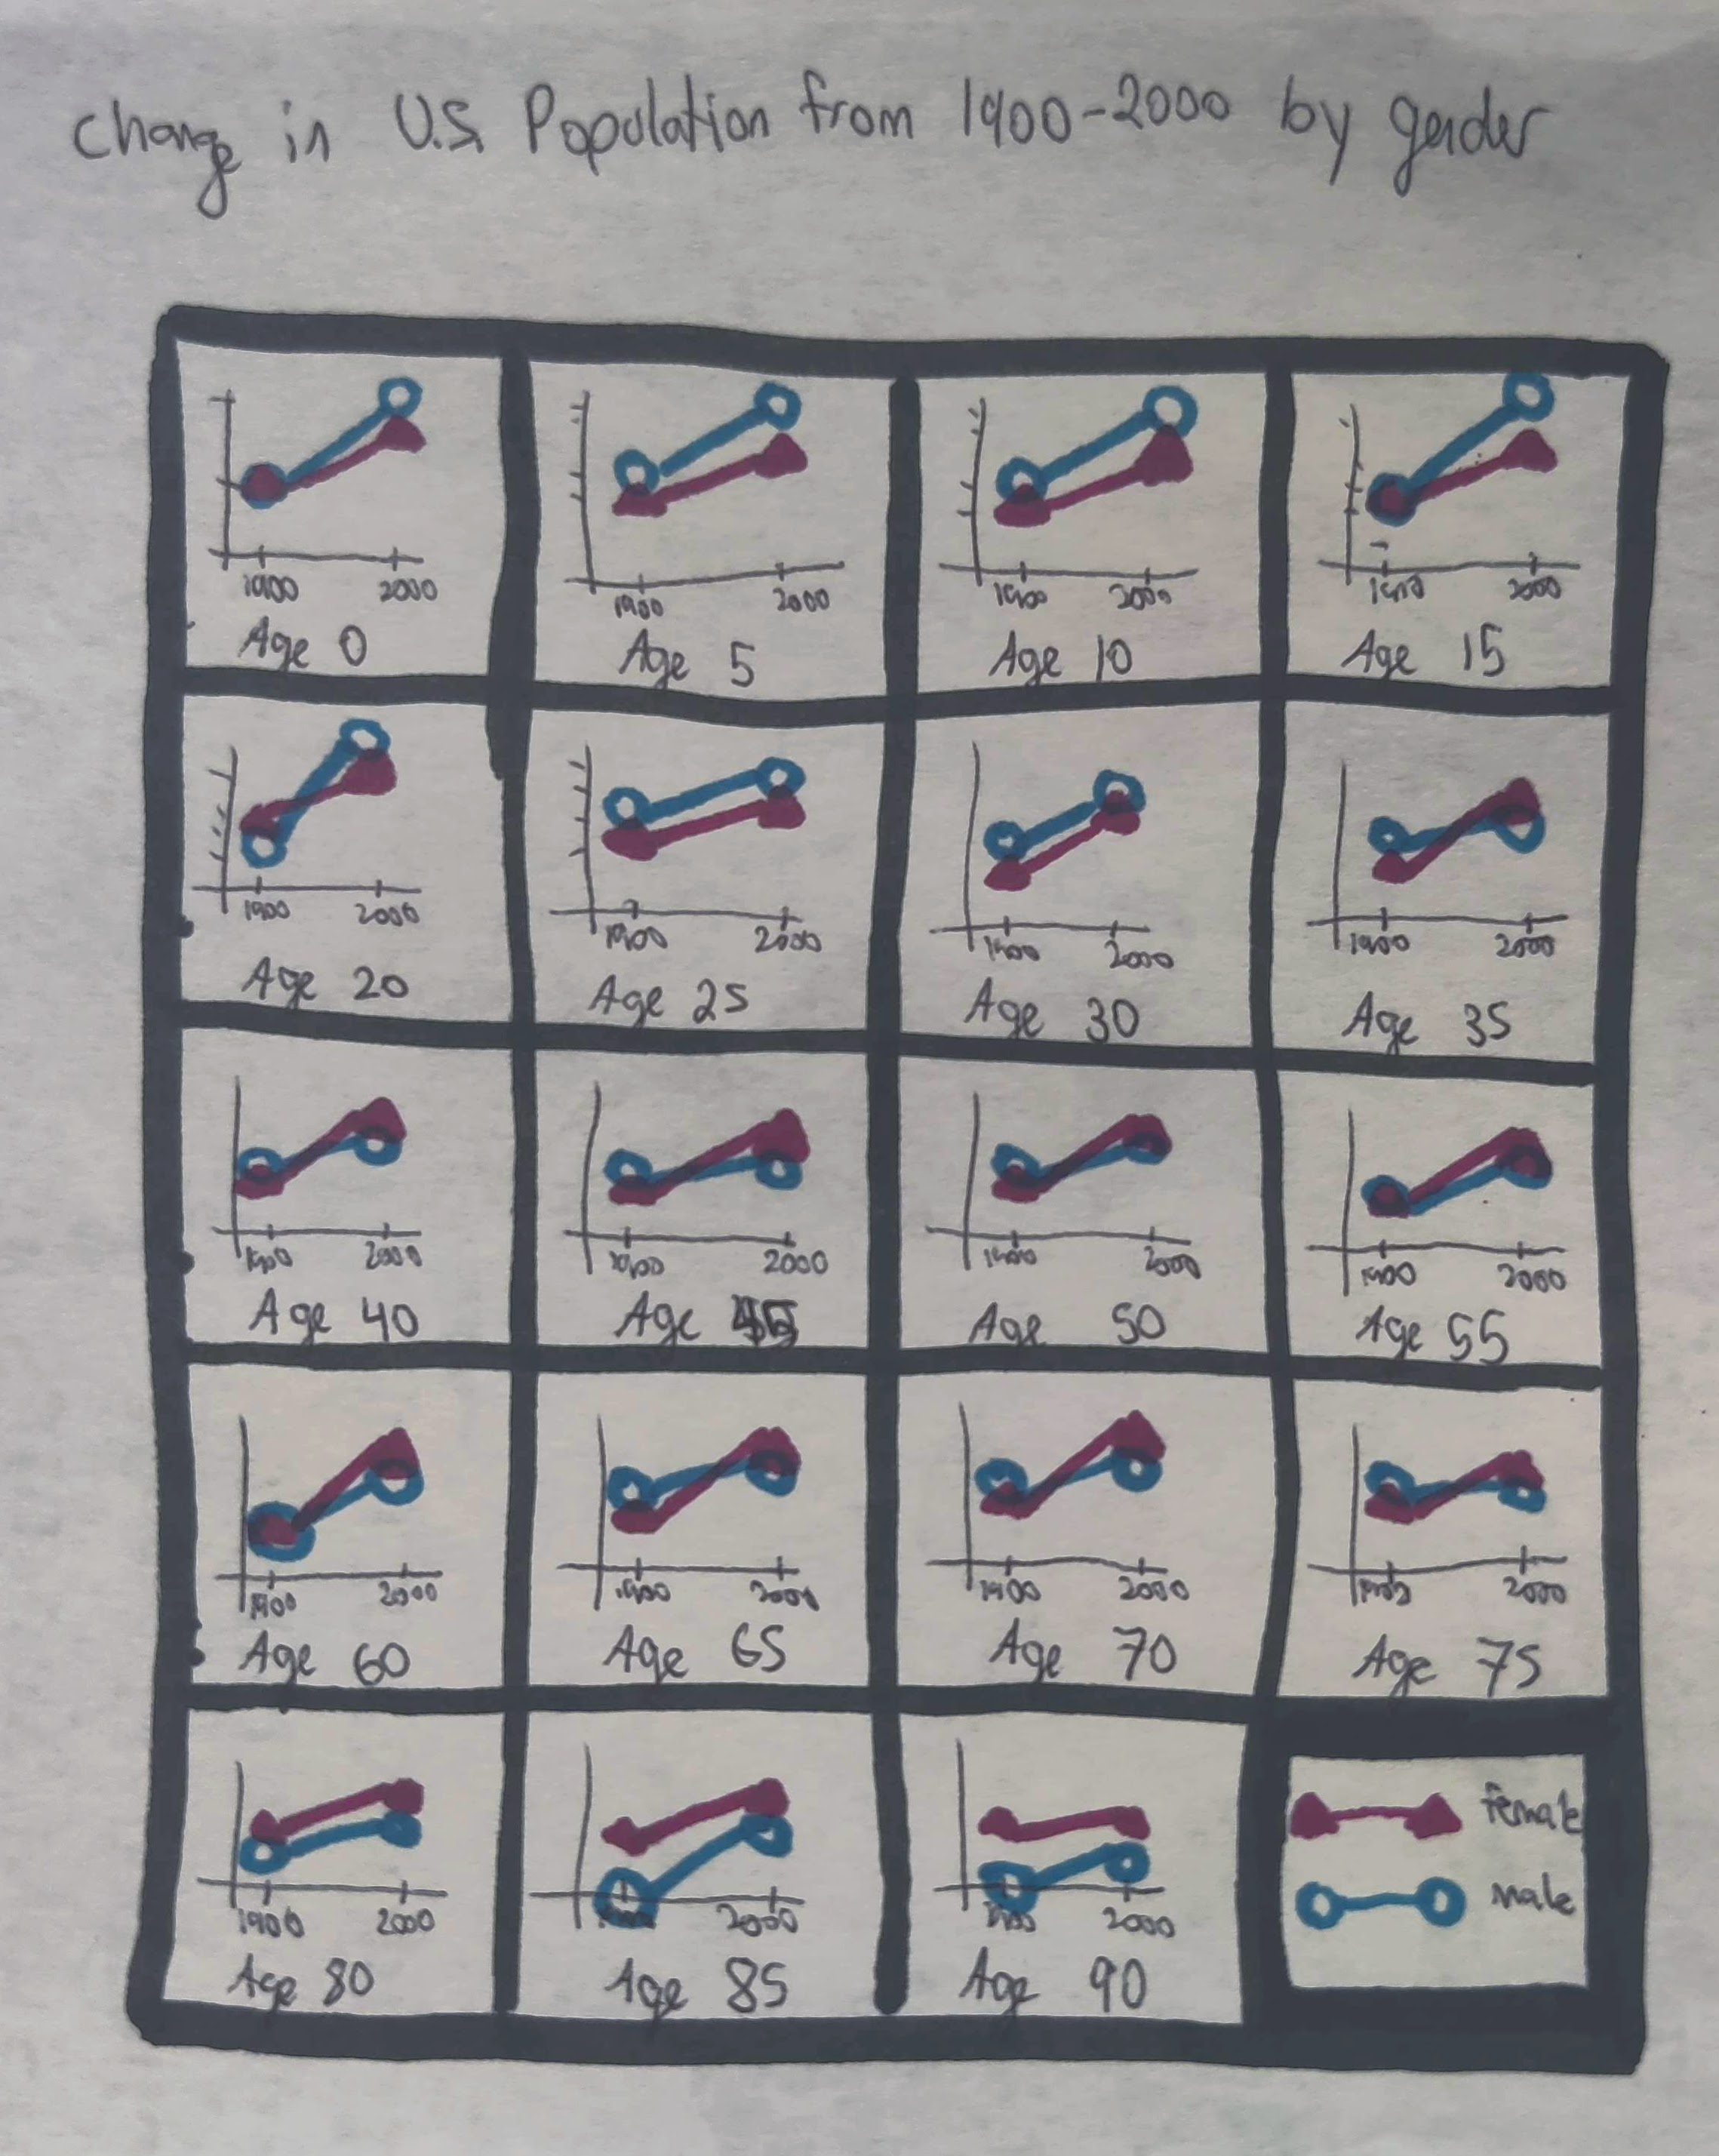 Change in U.S. Population from 1900-2000 by gender
1900 2000
Age 0
1900 2000
Age 5
1900 2000
Age 10
1900 2000
Age 15
1900 2000
Age 20
1900 2000
Age 25
1900 2000
Age 30
1900 2000
Age 35
1900 2000
Age 40
1900 2000
Age 45
1900 2000
Age 50
1900 2000
Age 55
1900 2000
Age 60
1900 2000
Age 65
1900 2000
Age 70
1900 2000
Age 75
1900 2000
Age 80
2000
Age 85
1900 2000
Age 90
female
male